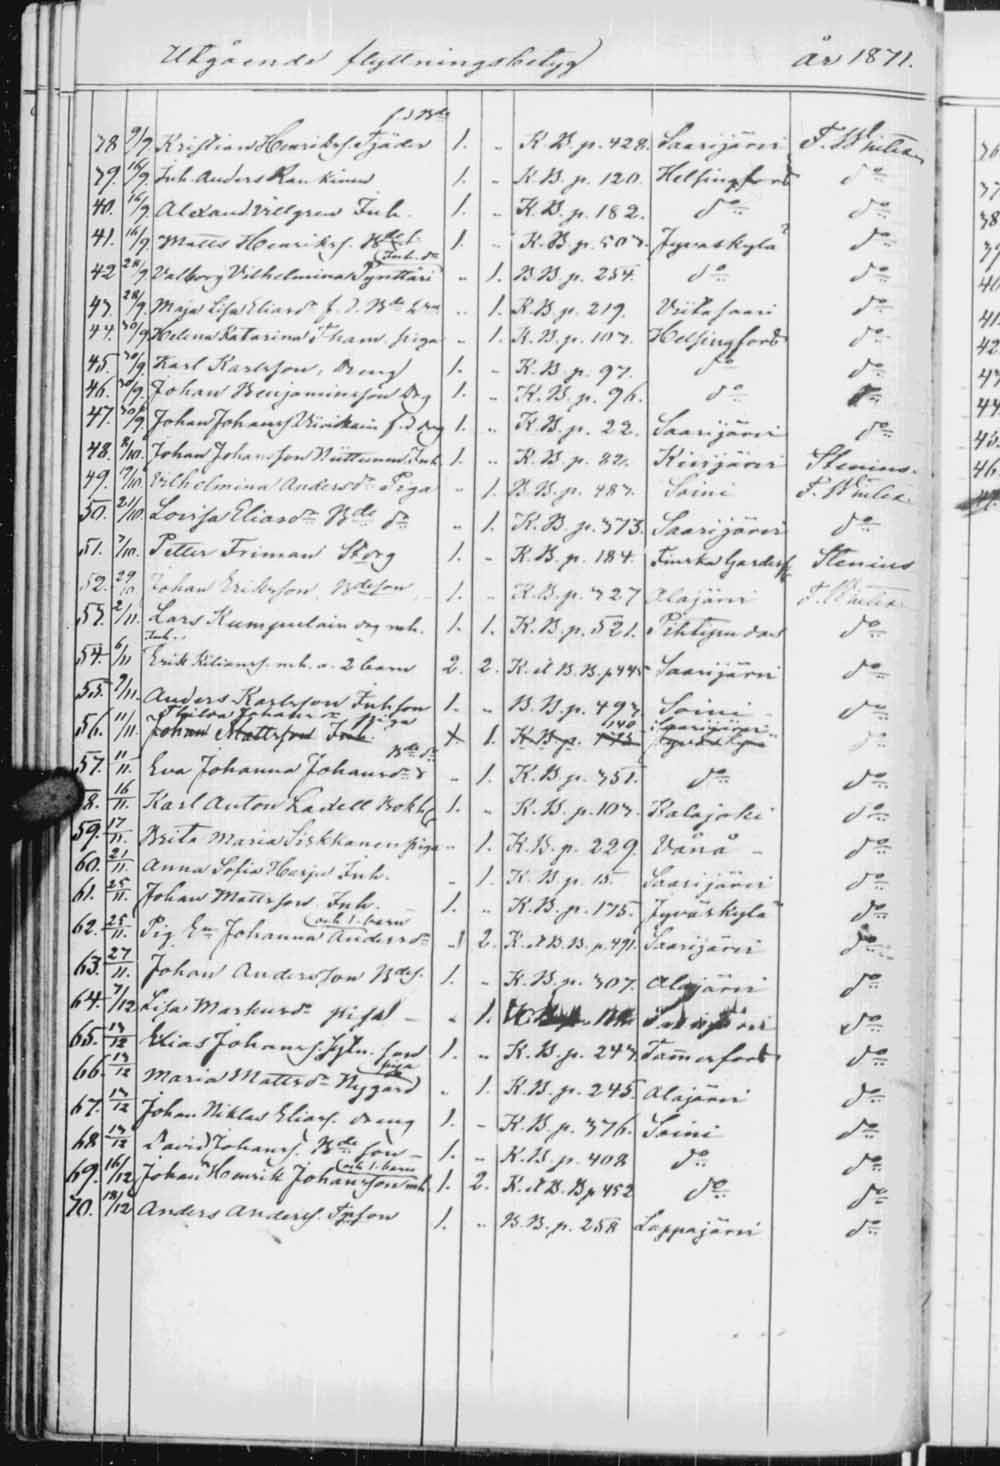 Utgående flyttningsbetyg år 1871.
f.d. Bde
38 9/9. Kristian Henrikss. Fjäder 1. „ K.B. p. 428. Saarijärvi F. W
39. 16/9. Inh. Anders Rankinen 1. „ K.B. p. 120. Helsingfors do
40. 16/9. Alexand. Villgren Inh. 1. „ K.B. p. 182. do do
41. 16/9 Matts Henrikss. Bde 1. „ K.B. p. 507. Jyväskylä do
Inh. dr
42 28/9 Valborg Vilhelmina Pynttäri „ 1. B.B. p. 254. do do
43. 28/9. Maja Lisa Eliasdr f.d. Bde „ 1. K.B. p. 219. Viitasaari do
44. 30/9. Helena Katarina piga „ 1. K.B. p. 107. Helsingfors do
45. 30/9. Karl Karlsson, Dreng 1. „ K.B. p. 97. do do
46. 30/9. Johan Benjaminsson Drg 1. „ K.B. p. 96. do do
47. 30/9. Johan Johanss. f.d. drg 1. „ K.B. p. 22. Saarijärvi do
48. 8/10. Johan Johansson Inh. 1. „ K.B. p. 82. Kivijärvi Stenius.
49. 9/10. Vilhelmina Andersdr Piga „ 1. B.B. p. 487. Soini F. W
50. 21/10. Lovisa Eliasdr Bde dr „ 1. K.B. p. 373. Saarijärvi do
51. 7/10. Petter Friman 1. „ K.B. p. 184. Finska Garde Stenius
52. 29/10. Johan Eriksson, Bdeson 1. „ K.B. p. 327 Alajärvi F. W
53. 2/11. Lars Kumpulain drg m.h. 1. 1. K.B. p. 521. Pihtipudas do
Inh.
54. 6/11 Erik Kilianss. m.h. o. 2 barn 2. 2. K. o. B.B. p 445 Saarijärvi do
55. 9/11. Anders Karlsson Inhson 1. „ B.B. p. 497. Soini do
Johansdr Piga 140 Saarijärvi
56. 11/11. Johan Mattsson Inh. 1. 1. K.B. p. 175 Jyväskylä do
Bde dr
57. 11/11. Eva Johanna Johansdr „ 1. K.B. p. 351. do do
58. 16/11. Karl Anton Ladell 1. „ K.B. p. 107. Kalajoki do
59. 17/11. Brita Maria piga „ 1. K.B. p. 229. Vånå do
60. 21/11. Anna Sofia Harju Inh. „ 1. K.B. p. 15. Saarijärvi do
61. 25/11. Johan Mattsson Inh. 1. „ K.B. p. 175. Jyväskylä do
och 1. barn
62. 25/11. Pig. Johanna Andersdr „ 2. K. o. B.B. p. 491. Saarijärvi do
63. 27/11. Johan Andersson Bdes. 1. „ K.B. p. 307. Alajärvi do
64. 7/12 Lisa Markusdr piga „ 1. K.B. p. Saarijärvi do
65. 13/12 Elias Johanss. son 1. „ K.B. p. 247. Tammerfors do
piga
66. 13/12 Maria Mattsdr Nygård „ 1. K.B. p. 245. Alajärvi do
67. 13/12 Johan Niklas Eliass. dreng 1. „ K.B. p. 376. Soini do
68. 13/12 David Johanss. Bde son 1. „ K.B. p. 408 do do
och 1. barn
69. 16/12 Johan Henrik Johansson m.h. 1. 2. K. o. B.B p 452 do do
70. 18/12 Anders Anderss. 1. „ B.B. p. 258 Lappajärvi do